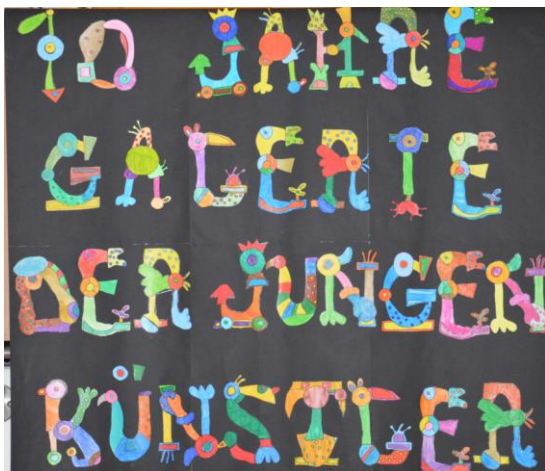 10 JAHRE
GALERIE
DER JUNGEN
KÜNSTLER